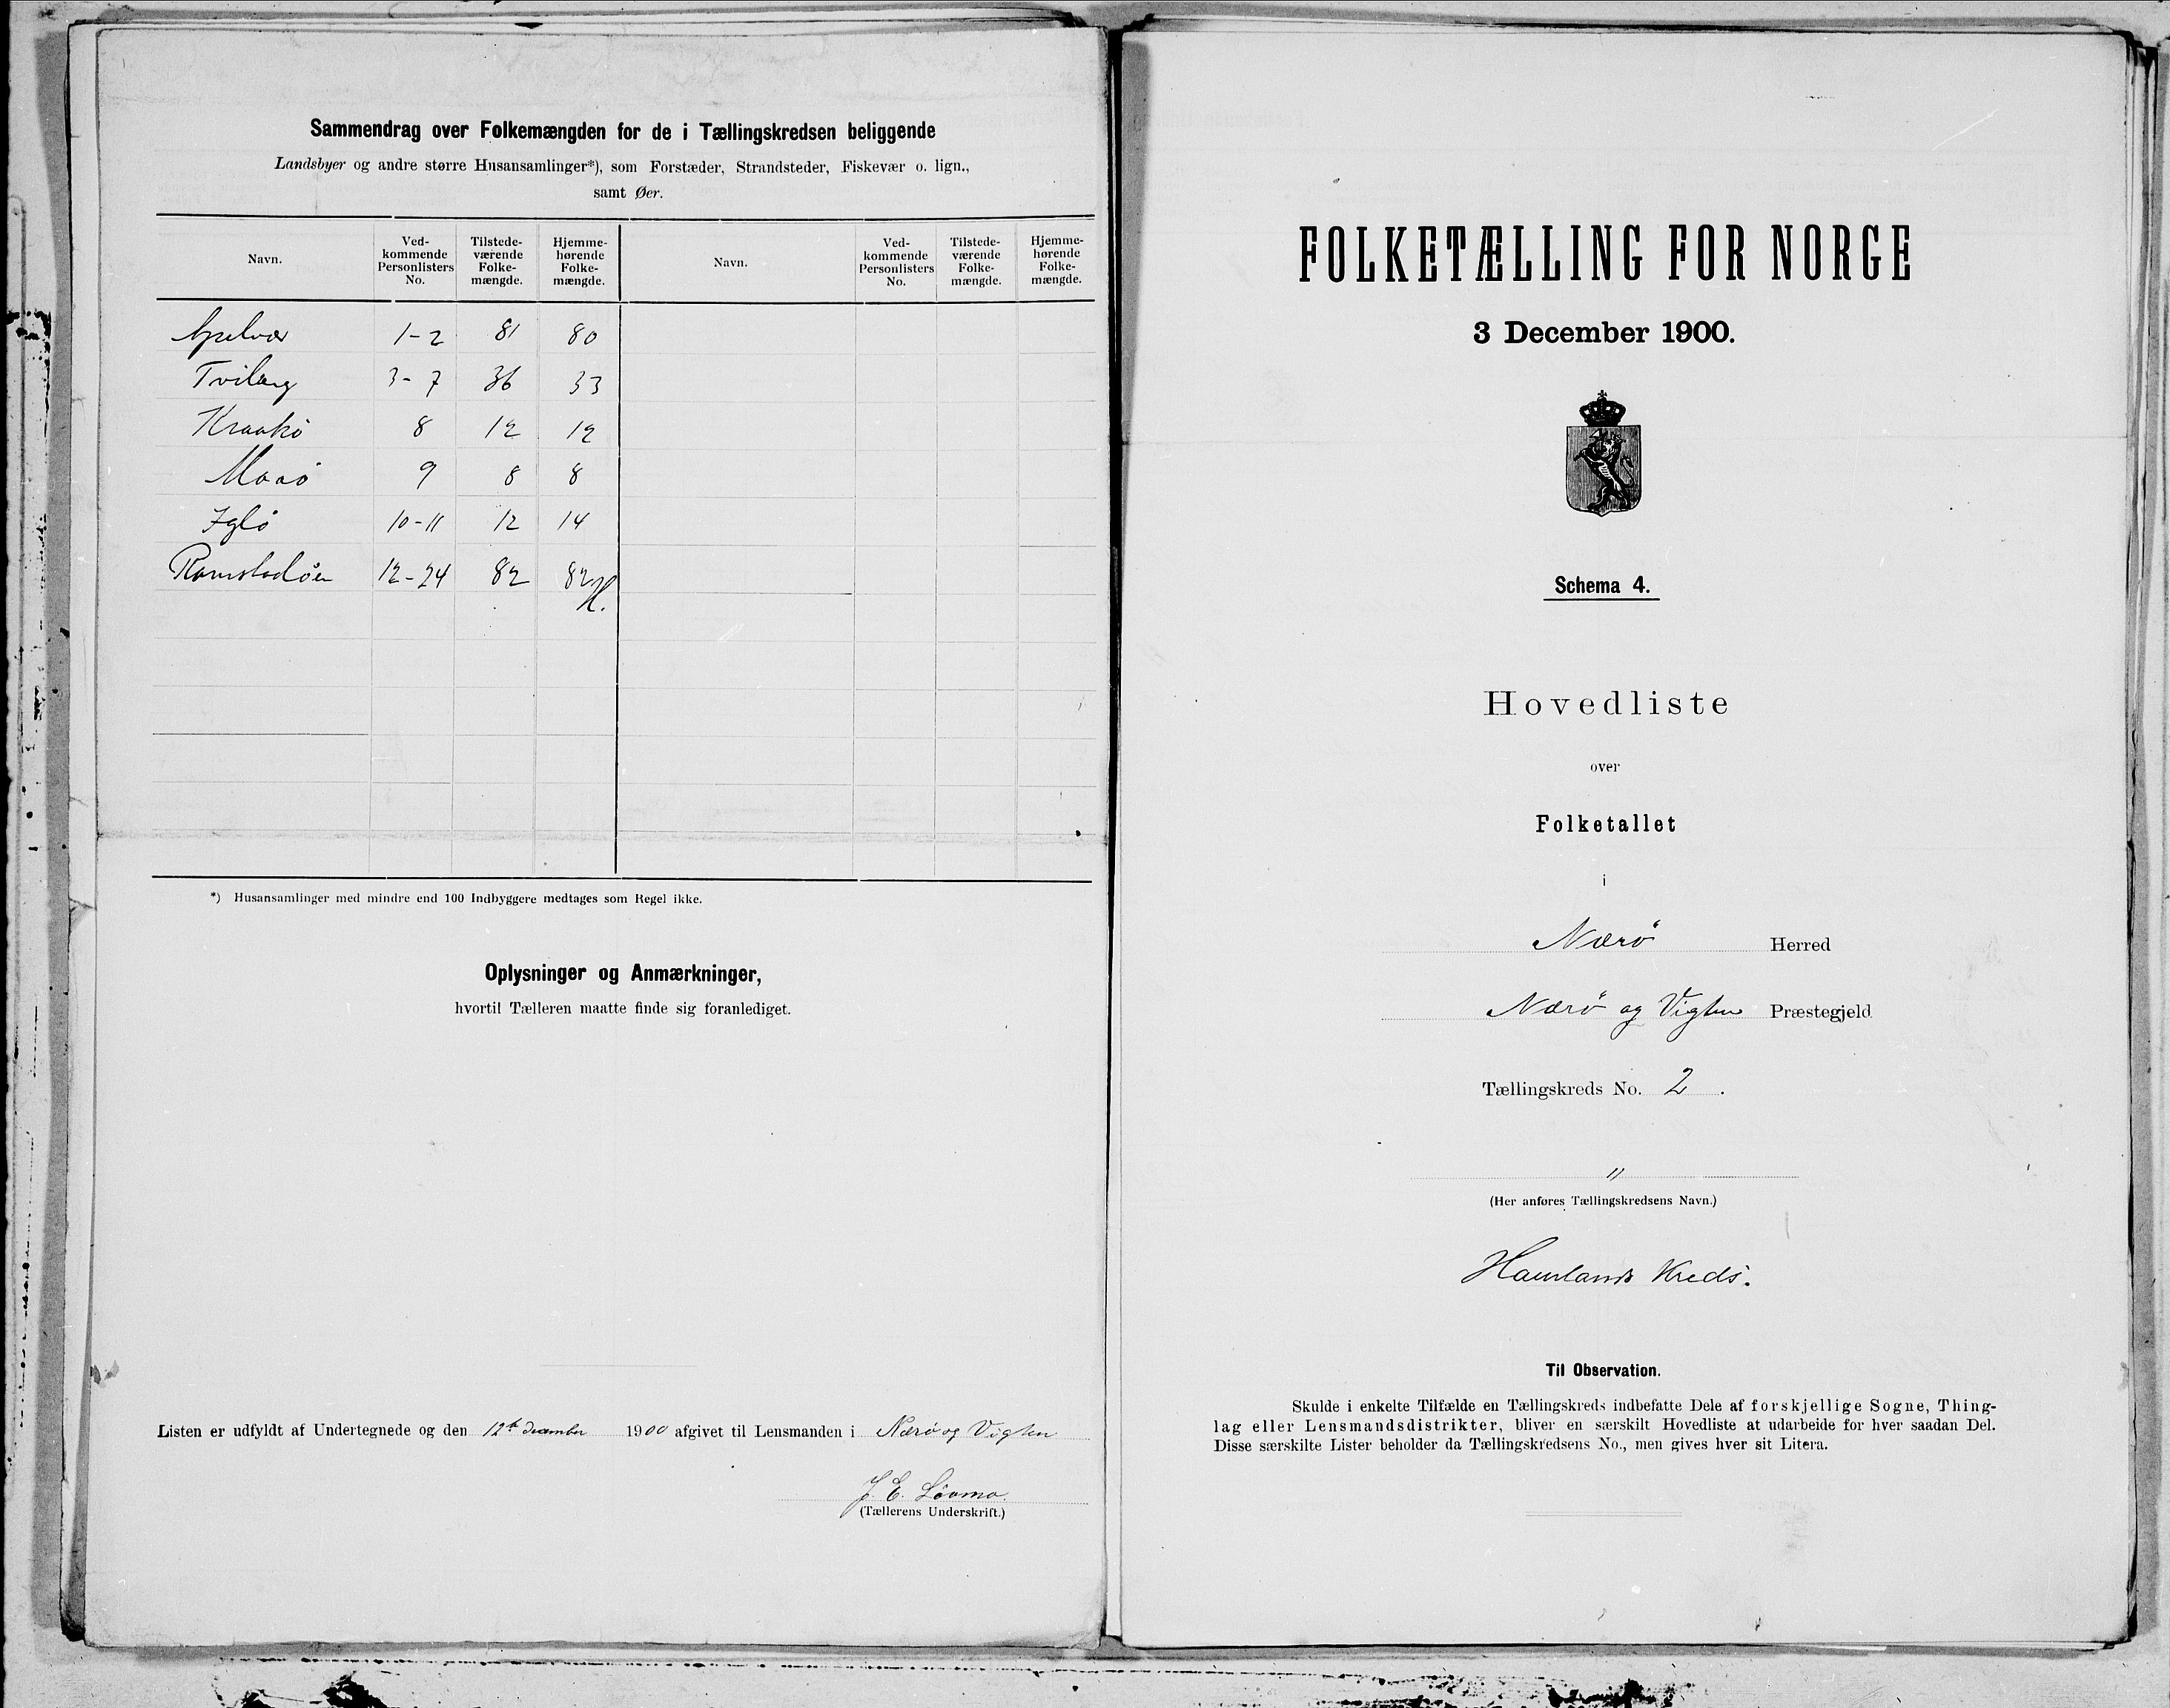 Sammendrag over Folkemængden for de i Tællingskredsen beliggende
Landsbyer og andre større Husansamlinger*), som Forstæder, Strandsteder, Fiskevær o. lign.,
samt Øer.
Navn. Ved-kommende Personlisters No. Tilstede-værende Folke-mængde. Hjemme-hørende Folke-mængde. Navn. Ved-kommende Personlisters No. Tilstede-værende Folke-mængde. Hjemme-hørende Folke-mængde.
Apelvær 1-2 81 80
Tviberg 3-7 36 33
Kraakö 8 12 12
Maaö 9 8 8
Iglö 10-11 12 14
Ramstadöen 12-24 82 82
*) Husansamlinger med mindre end 100 Indbyggere medtages som Regel ikke.
Oplysninger og Anmærkninger,
hvortil Tælleren maatte finde sig foranlediget.
Listen er udfyldt af Undertegnede og den 12te December 1900 afgivet til Lensmanden i Nærö og Vigten
J. E. Lövmo.
(Tællerens Underskrift.)
FOLKETÆLLING FOR NORGE
3 December 1900.
Schema 4.
Hovedliste
over
Folketallet
i
Nærö Herred
Nærö og Vigten Præstegjeld
Tællingskreds No. 2.
"
(Her anføres Tællingskredsens Navn.)
Hamlands Kreds.
Til Observation.
Skulde i enkelte Tilfælde en Tællingskreds indbefatte Dele af forskjellige Sogne, Thing-
lag eller Lensmandsdistrikter, bliver en særskilt Hovedliste at udarbeide for hver saadan Del.
Disse særskilte Lister beholder da Tællingskredsens No., men gives hver sit Litera.